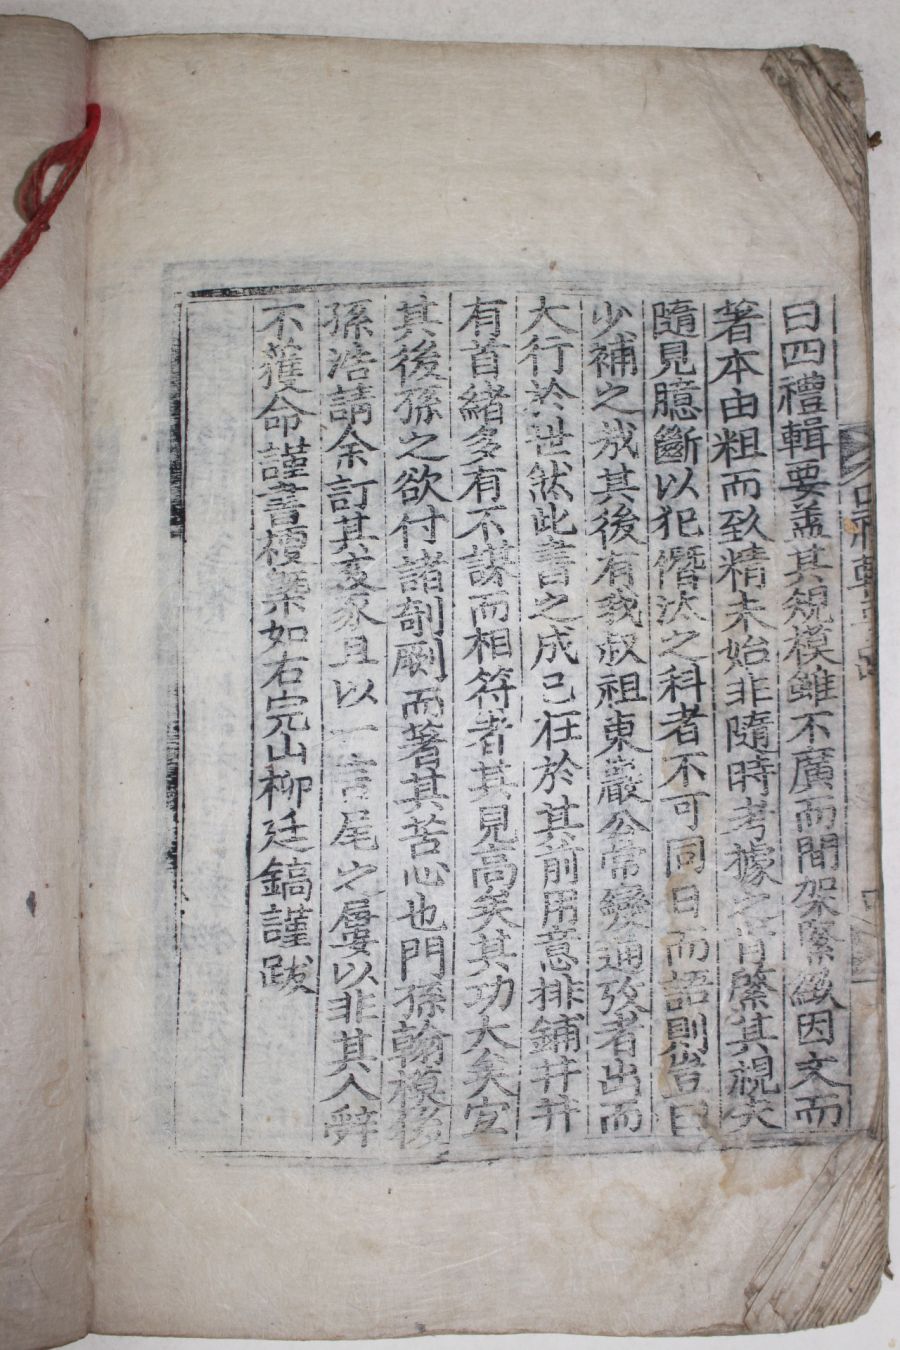 曰四禮輯要盖其䂓模雖不廣而間架緊緻因文而
著本由粗而致精未始非隨時考據之書緊其視突
隨見臆斷以犯僭汰之科者不可同日而語則豈曰
少補之哉其後有我叔祖東巖公常變通攷者出而
大行於世然此書之成已在於其前用意排鋪井井
有首緖多有不謀而相符者其見高矣其功大矣宜
其後孫之欲付諸剞劂而著其苦心也門孫翰模後
孫浩請余訂其亥豕且以一言尾之屢以非其人辭
不獲命謹書梗槩如右完山柳廷鎬謹跋
四禮輯要